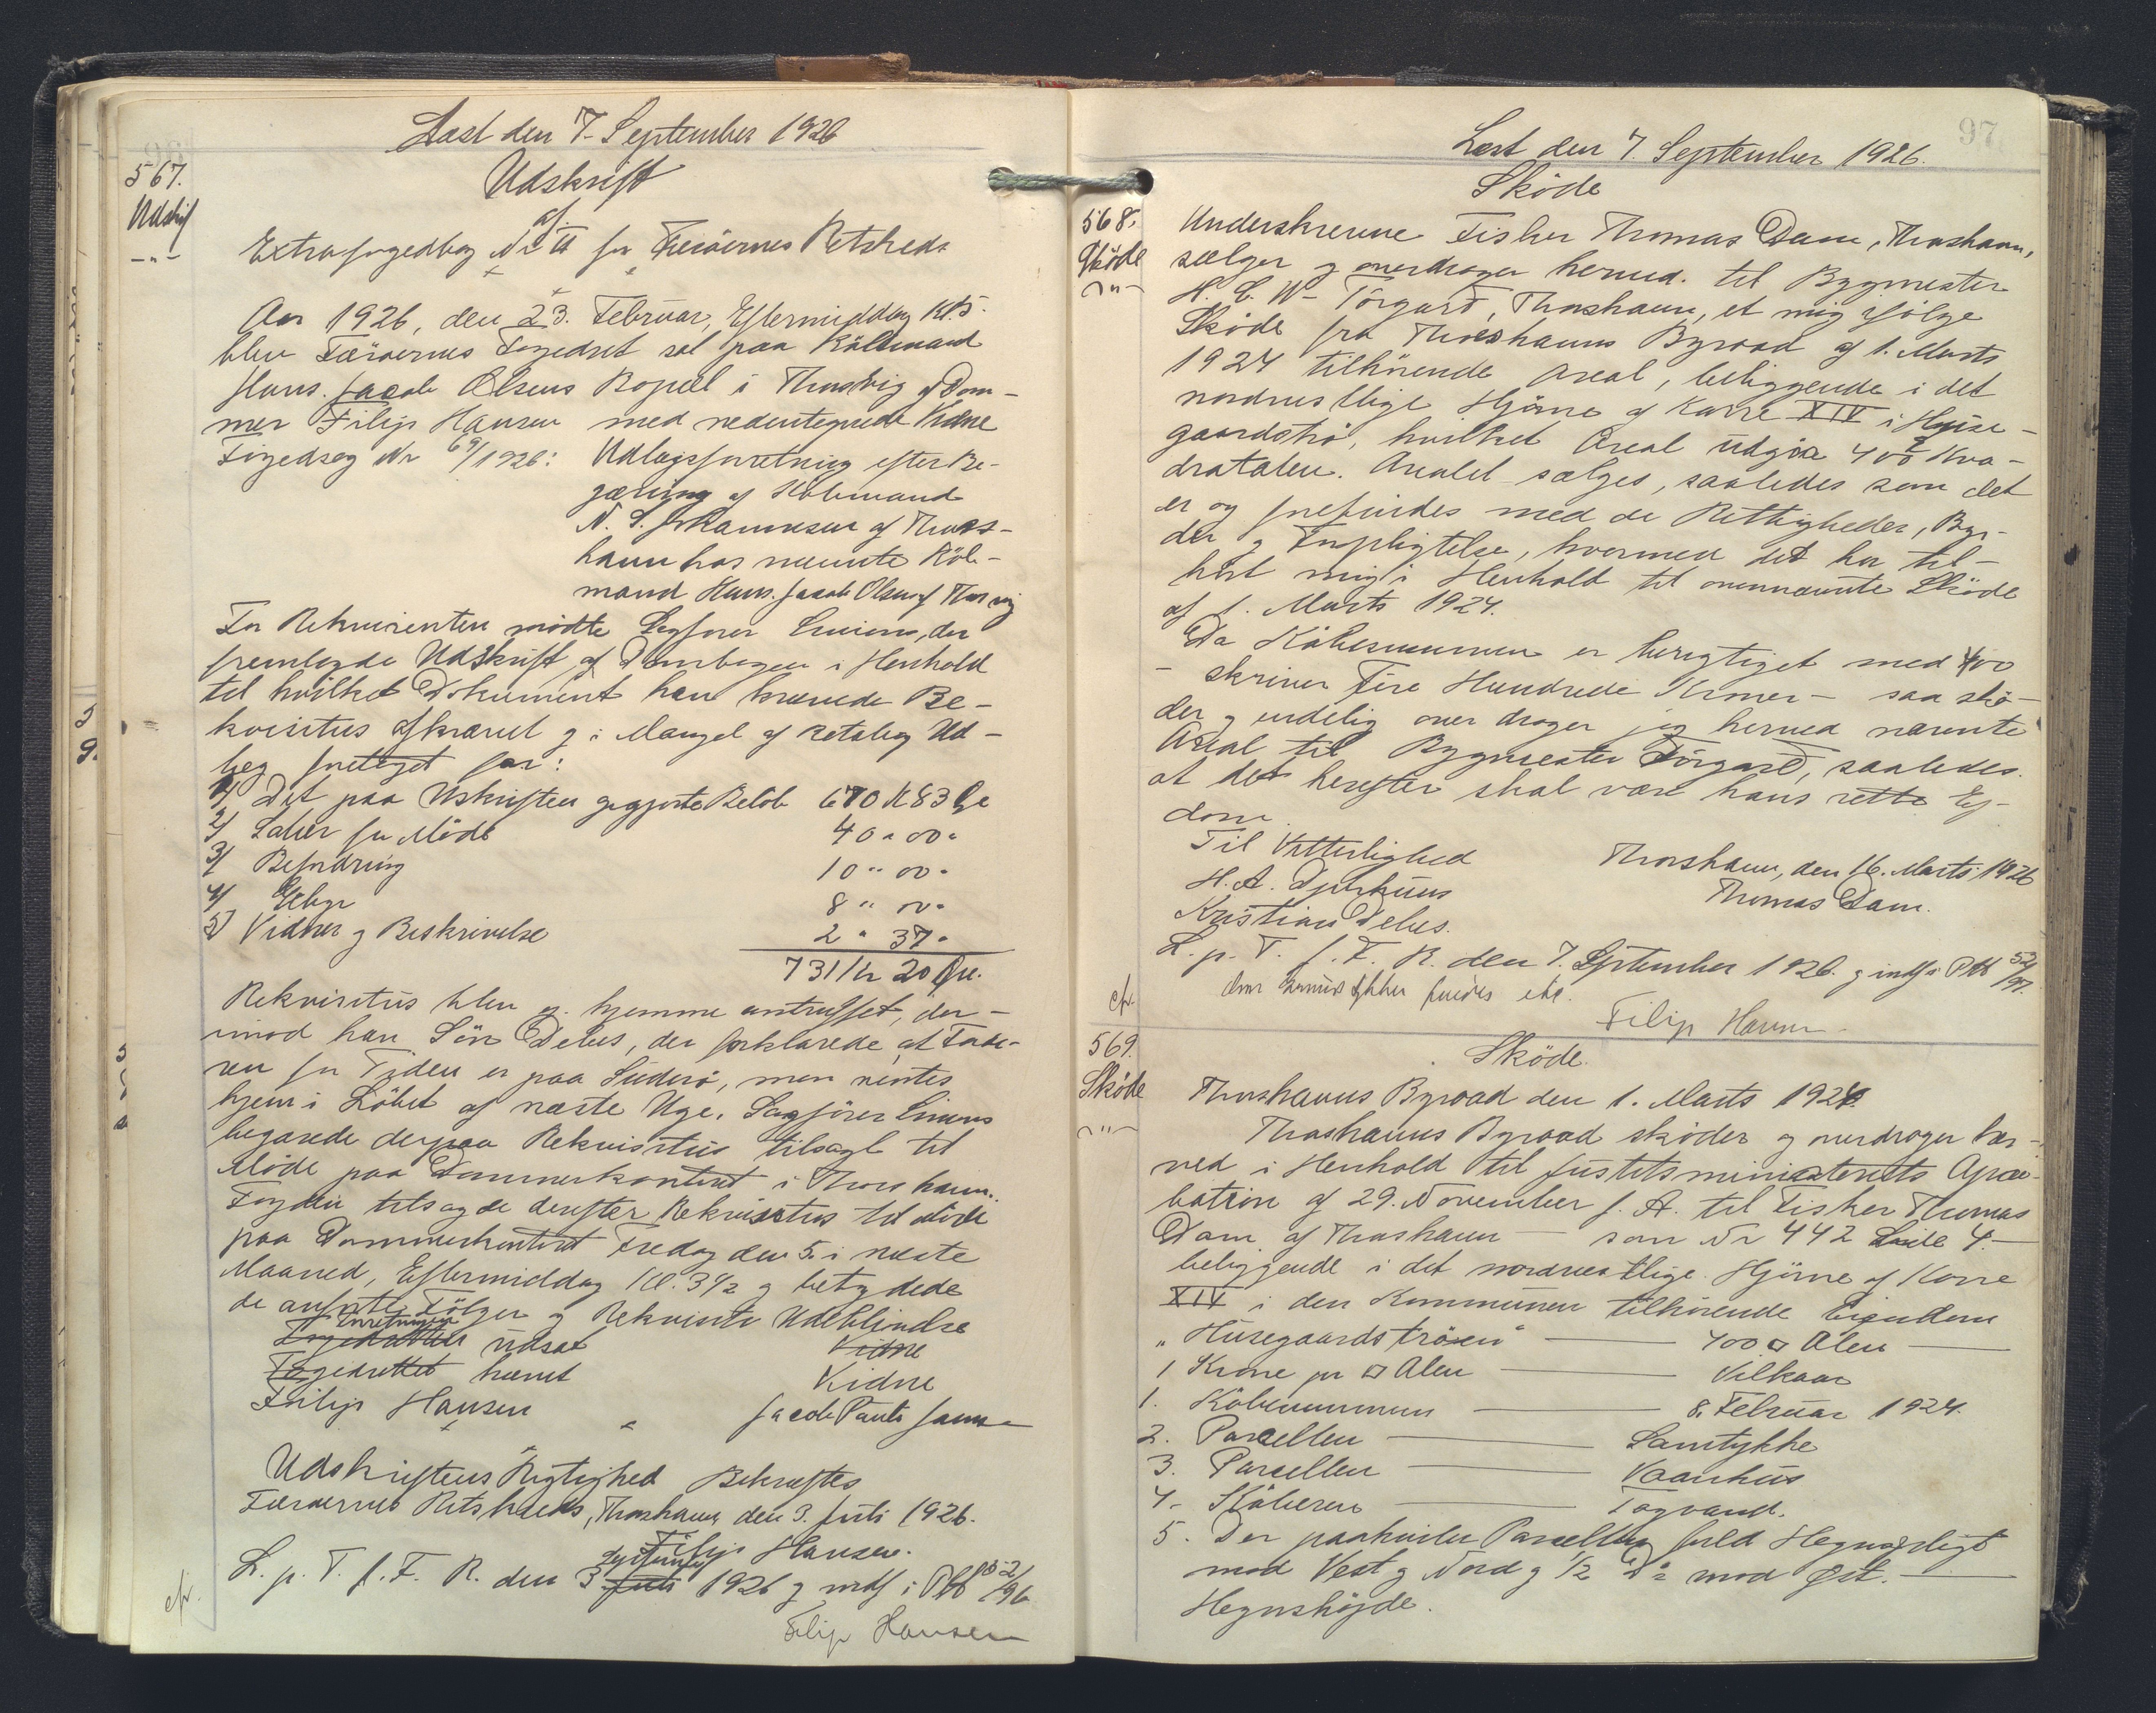 Læst den 7. September 1926
567.
Udskrif
Udskrift
af
Extrafogedbog Nr II for Færöernes Retskreds
Aar 1926, den 23. Februar, Eftermiddag Kl. 5.
blev Færöernes Fogedret sat paa Kölmand
Hans Jacob Olsens Bopæl i Thorsvig af Dom-
mer Filip Hansen med nedentegnede Vidne
Fogedsag Nr 69/1926: Udlagsforretning efter Be-
gæring af Kölmand
N. S. Johannesen af Thors-
havn hos nævnte Köb-
mand Hans. Jacob Olsen af Thorsvig
For Rekvirenten mödte Sagförer Simiens, der
fremlagde Udskrift af Dombogen i Henhold
til hvilket Dokument han krævede Be-
kvisitus afkrævet og i Mangel af Betaling Ud-
læg foretaget for:
1) Det paa Udskriften gegjorte Belöb 670 K 83 Öre
2) Salær for Möde 40 " 00 "
3) Befordring 10 " 00 "
4) Gebyr 8 " 00 "
5) Vidner og Beskrivelse 2 " 37 "
731 Kr 20 Öre.
Rekvisitus blev ej hjemme antruffet, der-
imod han Sön Delus, der forklarede at Fade-
ren for Tiden er paa Suderö, men ventes
hjem i Löbet af næste Uge. Sagförer Simens
begærede derpaa Rekvisitus tilsagt til
Möde paa Dommerkontoret i Thorshavn.
Fogden tilsagde derefter Rekvisitus til Möde
paa Dommerkontoret Fredag den 5. i næste
Maaned, Eftermiddag Kl. 3½ og betydede
de anförte Fölger af Rekvisiti Udeblivelse
Forretningen
Fogedretten udsat Vidne
Fogedrettet hævet Vidne
Filip Hansen Jacob Pauli
Udskriftens Rigtighed Bekræftes
Færöernes Retskreds, Thorshavn den 3. Juli 1926.
Filip Hansen.
September
L. p. T. f. F. R. den 3. Juli 1926 og indf i Ptb No 52/96
cfr.
Filip Hansen
97
Læst den 7. September 1926.
Sköde
568.
Sköde
Underskrevne Fisker Thomas Dam, Thorshavn,
sælger og overdrager herved til Bygmester
H. C. W. Törgard, Thorshavn, et mig ifölge
Sköde fra Thorshavns Byraad af 1. Marts
1924 tilhörende Areal, beliggende i det
nordvestlige Hjörne af Karre XIV i Husa-
gaardströ, hvilket Areal udgör 400 Kva-
dratalen. Arealet sælges, saaledes som det
er og forefindes med de Rettigheder, Byr-
der og Forpligtelse, hvormed det har til-
hört mig i Henhold til ovennævnte Sköde
af 1. Marts 1924.
Da Köbesummen er berigtiget med 400
- skriver Fire Hundrede Kroner - saa skö-
der og endelig over drager jeg herved nævnte
Areal til Bygmester Törgard, saaledes
at det herefter skal være hans rette Ej-
dom.
Til Vitterlighed
Thorshavn, den 16. Marts 1926
H. A. Djurhuus
Thomas Dam.
Kristian Delus.
L. p. T. f. F. R. den 7. September 1926. og indf i Ptb 52/97.
cfr.
Filip Hansen
569.
Sköde
Sköde.
Thorshavns Byraad den 1. Marts 1924.
Thorshavns Byraad sköder og overdrager her-
ved i Henhold til Justitsministeriets Appro-
bation af 29. November f. A. til Fisker Thomas
Dam af Thorshavn — som Nr 442 Lille 4. —
beliggende i det nordvestlige Hjörne af Karre
XIV i den Kommunen tilhörende Eiendom
"Husegaardströen" — 400 □ Alen —
1 Krone pr □ Alen — Vilkaar
1. Köbesummen — 8. Februar 1924.
2. Parcellen — Samtykke
3. Parcellen — Vaanhus
4. Köberen — Tagvand.
5. Der paahviler Parcellen fuld Hegnspligt
mod Vest og Nord og ½ D° mod Øst. —
Hegnshöjde.